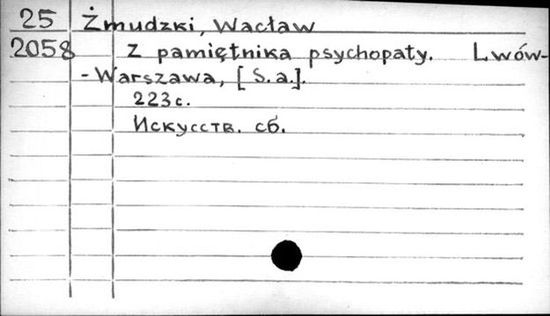 25 Żmudzki, Wacław
2058 Z pamiętnika psychopaty. Lwów-
-Warszawa, [S.a.].
223 с.
Искусств. сб.